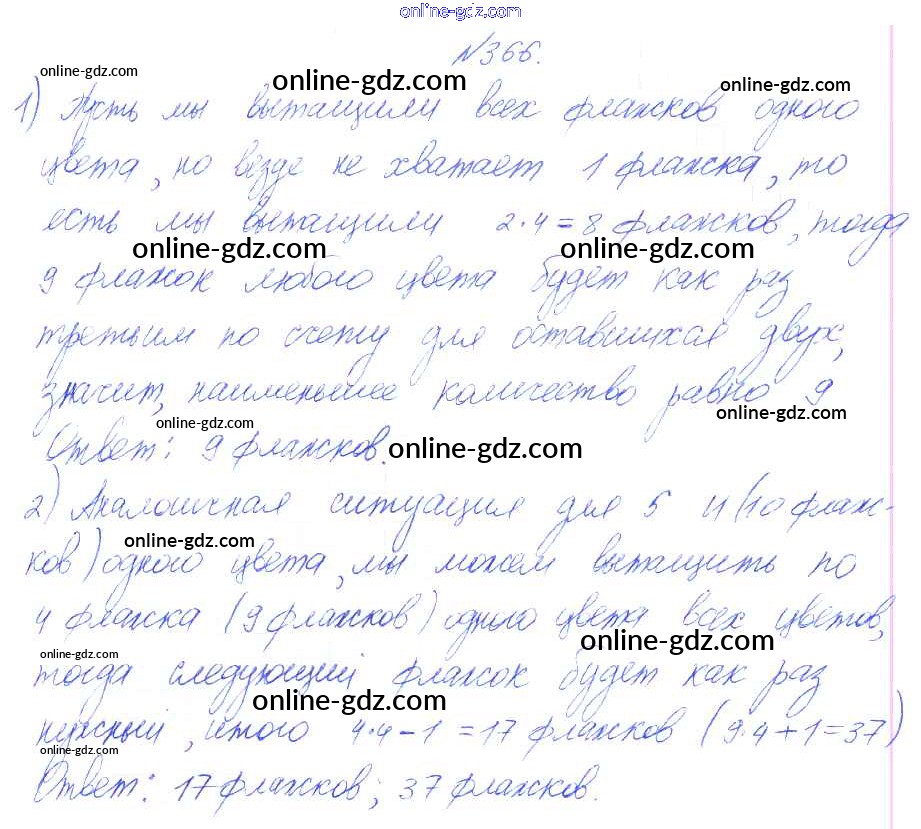 online-gdz.com
№366.
online-gdz.com online-gdz.com online-gdz.com
1) Пусть мы вытащили всех флажков одного
цвета, но везде не хватает 1 флажка, то
есть мы вытащили 2·4=8 флажков, тогда
online-gdz.com online-gdz.com
9 флажок любого цвета будет как раз
третьим по счету для оставшихся двух,
значит, наименьшее количество равно 9
online-gdz.com online-gdz.com
Ответ: 9 флажков.
online-gdz.com
2) Аналогичная ситуация для 5 и (10 флаж-
online-gdz.com
ков) одного цвета, мы можем вытащить по
4 флажка (9 флажков) одного цвета всех цветов,
online-gdz.com online-gdz.com
тогда следующий флажок будет как раз
online-gdz.com
нужный, итого 4·4-1=17 флажков (9·4+1=37)
online-gdz.com
Ответ: 17 флажков; 37 флажков.